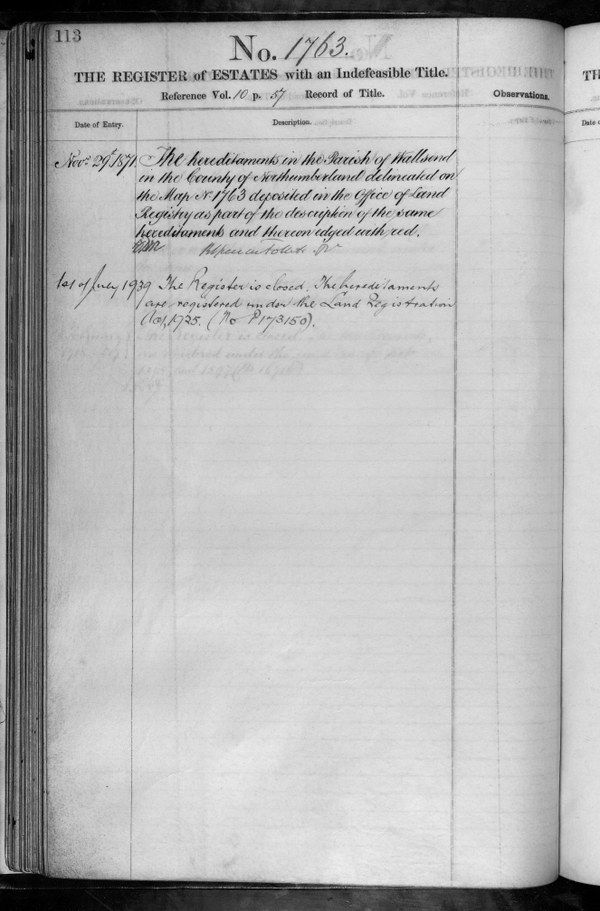 113
No. 1763.
THE REGISTER of ESTATES with an Indefeasible Title.
Reference Vol. 10 p. 57 Record of Title.
Observations.
Date of Entry.
Description.
Novr. 29th. 1871. The hereditaments in the Parish of Wallsend
in the County of Northumberland delineated on
the Map No 1763 deposited in the Office of Land
Registry as part of the description of the same
hereditaments and thereon edged with red.
1st of July 1939 The Register is closed. The hereditaments
are registered under the Land Registration
Act, 1925. (No P173150).
TH
Date o